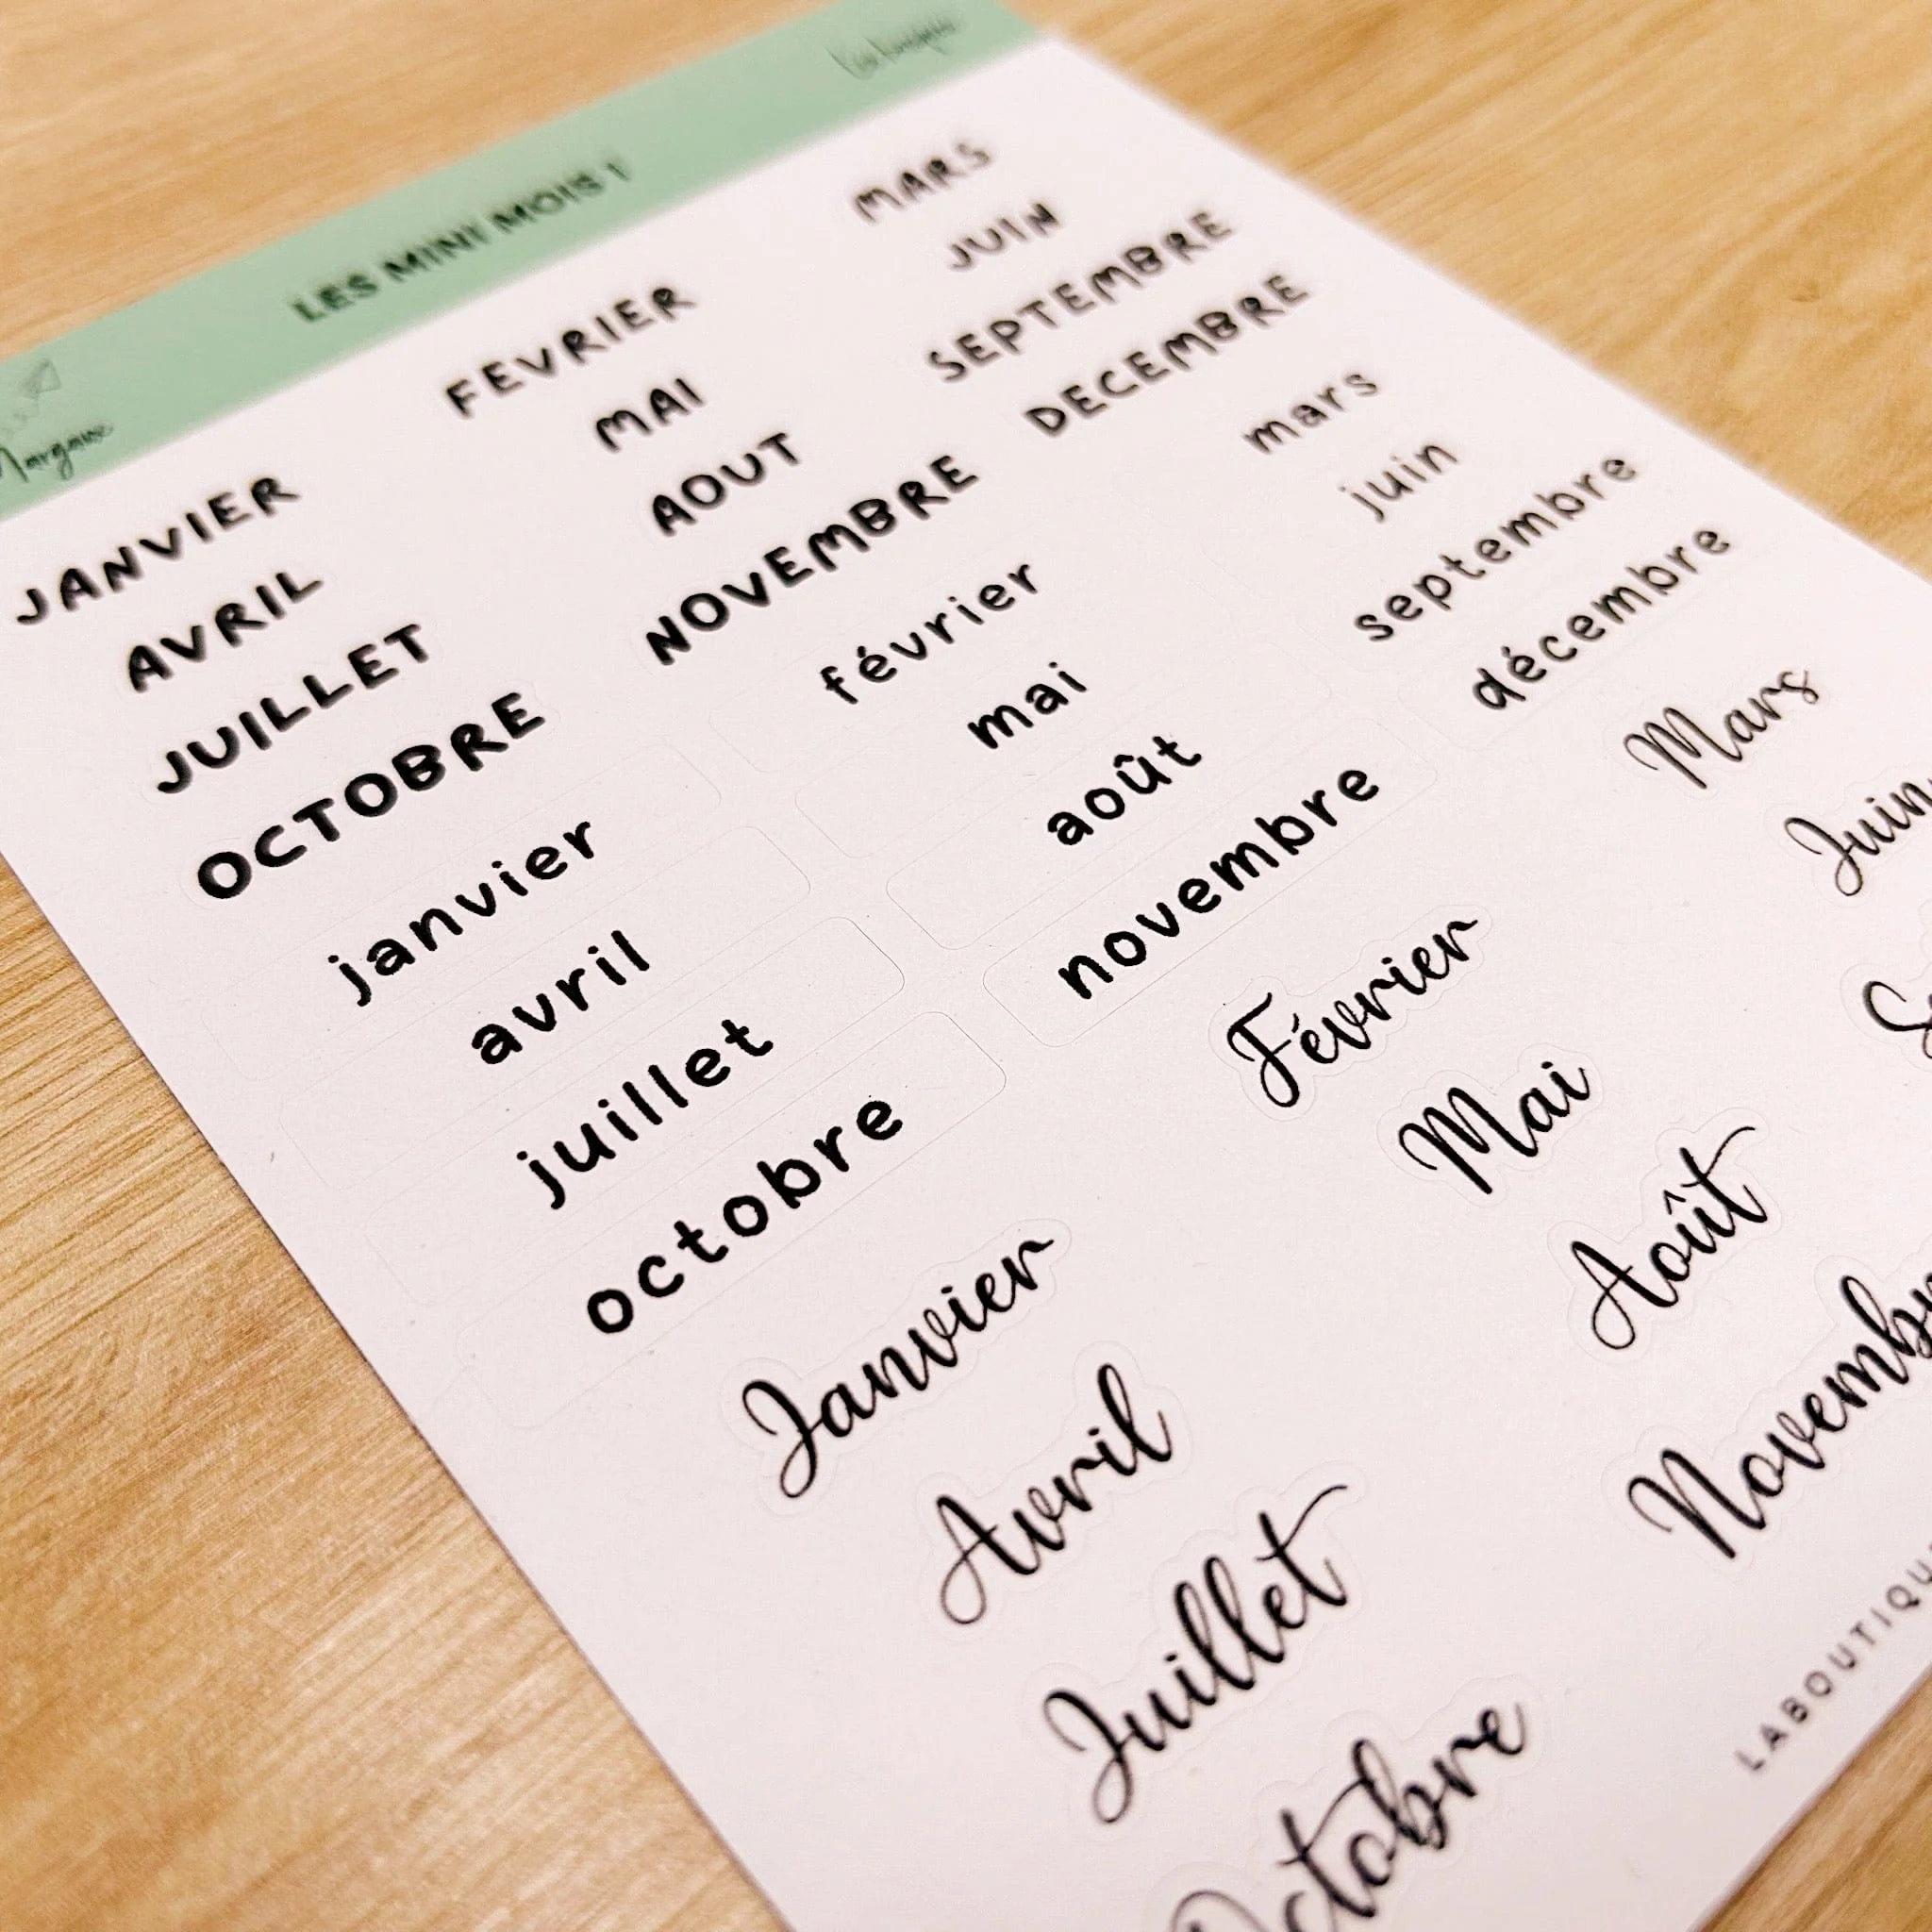 LES MINI MOIS 1
Margaux
JANVIER FEVRIER MARS
AVRIL MAI JUIN
JUILLET AOUT SEPTEMBRE
OCTOBRE NOVEMBRE DECEMBRE
janvier février mars
avril mai juin
juillet août septembre
octobre novembre décembre
Janvier Février Mars
Avril Mai Juin
Juillet Août Se
Octobre Novembr
LABOUTIQU